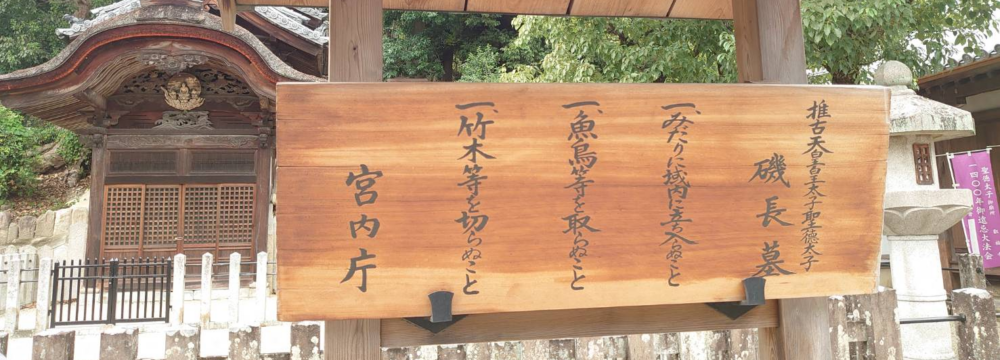 推古天皇皇太子聖徳太子
磯長墓
一、みだりに域内に立ち入らぬこと
一、魚鳥等を取らぬこと
一、竹木等を切らぬこと
宮内庁
聖徳太子
一四〇〇年御遠忌大法会